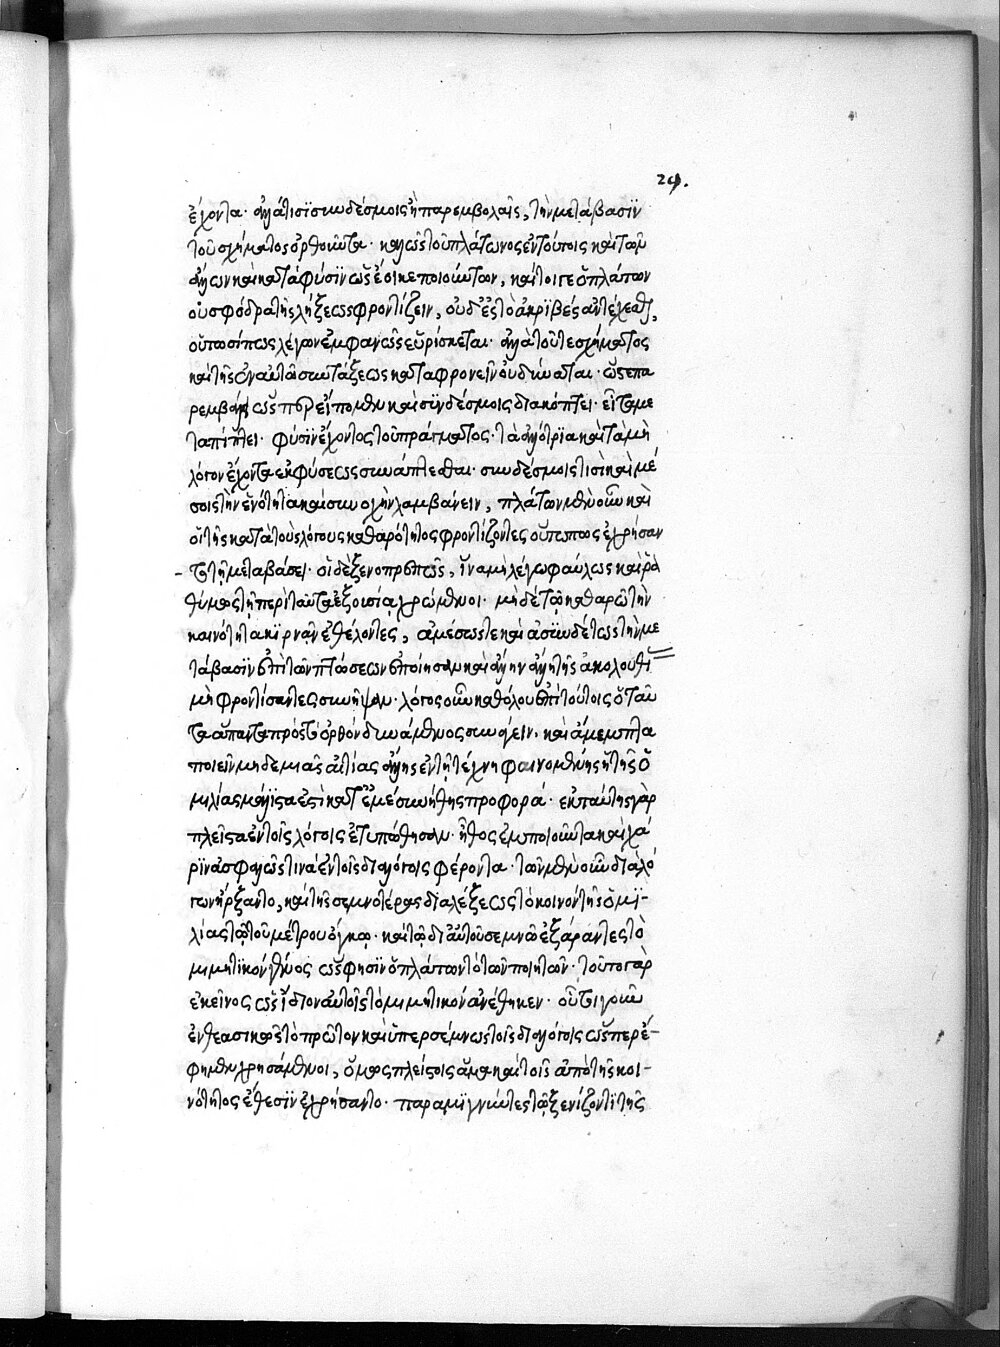 24.
ἔχοντα· ἀλλά τισϊ συνδέσμοις ἢ παρεμβολαῖς, τὴν μετάβασϊν
τοῦ σχήματος ὀρθοῦντα· καλῶς τοῦ πλάτωνος ἐν τούτοις καὶ τῶν
ἄλλων καὶ κατὰ φύσϊν ὡς ἔοικε ποιούντων, καίτοι γε ὁ πλάτων
οὐ σφόδρα τῆς λέξεως φροντίζειν, οὐδ' ἐς τὸ ἀκρϊβὲς ἀντέχεσθαι,
οὕτωσί πως λέγων ἐμφανῶς εὑρίσκεται· ἀλλὰ τοῦ τε σχήματος
καὶ τῆς ἐν αὐτῶ συντάξεως καταφρονεῖν οὐ δύναται· ὥστε πα
ρεμβολαῖς ὥσπερ εἴπομεν καὶ συνδέσμοις διακόπτει· εἶτα με
ταπίπτει· φύσϊν ἔχοντος τοῦ πράγματος· τὰ ἀλλότρϊα καὶ τὰ μὴ
λόγον ἔχοντα ἐκ φύσεως συνάπτεσθαι· συνδέσμοις τισὶ καὶ μέ
σοις τὴν ἑνότητα καὶ συνοχὴν λαμβάνειν, πλάτων μὲν οὖν καὶ
οἵ τῆς κατὰ τοὺς λόγους καθαρότητος φροντίζοντες οὕτω πως ἐχρήσαν
το τῆ μεταβάσει· οἱ δὲ ξενοπρεπῶς, ἵνα μὴ λέγω φαύλως καὶ ῥα
θύμως τῆ περὶ ταῦτα ἐξουσία χρώμενοι· μηδὲ τῶ καθαρῶ τὴν
καινότητα κϊρνᾶν ἐθέλοντες, ἀμέσως τε καὶ ἀσυνδέτως τὴν με
τάβασϊν ἐπὶ τῶν πτώσεων ἐποίησαν καὶ ἄλλην ἄλλη τῆς ἀκολουθί
μὴ φροντίσαντες συνῆψαν· λόγος οὖν καθόλου ἐπὶ τούτοις ὅταν
τα ἅπαντα πρὸς τὸ ὀρθὸν δυνάμενος συνάγειν· καὶ ἄμεμπτα
ποιεῖν μηδεμιᾶς αἰτίας ἄλλης ἐν τῆ τέχνη φαινομένης ἢ τῆς ὁ
μιλίας μάλϊστα ἐστὶ κατ' ἐμὲ συνήθης προφορά· ἐκ ταύτης γὰρ
πλεῖστα ἐν τοῖς λόγοις ἐτυπώθησαν· ἦθος ἐμποιοῦντα καὶ χά
ρϊν ἀσφαλῶς τινὰ ἐν τοῖς διαλόγοις φέροντα· τῶν μὲν οὖν διαλό
γων ἤρξαντο, καὶ τῆς σεμνοτέρας διαλέξεως τὸ κοινὸν τῆς ὁμϊ-
λίας τῶ τοῦ μέτρου ὄγκω· καὶ τῶ δι' αὐτοῦ σεμνῶ ἐξάραντες τὸ
μιμητϊκὸν γένος ὡς φησὶν ὁ πλάτων τὸ τῶν ποιητῶν· τοῦτο γὰρ
ἐκεῖνος ὡς ἴδιον αὐτοῖς τὸ μιμητικὸν ἀνέθηκεν· οὗτοι γοῦν
ἐνθεαστικῶς τὸ πρῶτον καὶ ὑπερσέμνως τοῖς διαλόγοις ὥσπερ ἔ-
φημεν χρησάμενοι, ὅμως πλείστοις ἅμα καὶ τοῖς ἀπὸ τῆς κοι-
νότητος ἔθεσϊν ἐχρήσαντο· παραμϊγνύντες τῶ ξενίζοντϊ τῆς